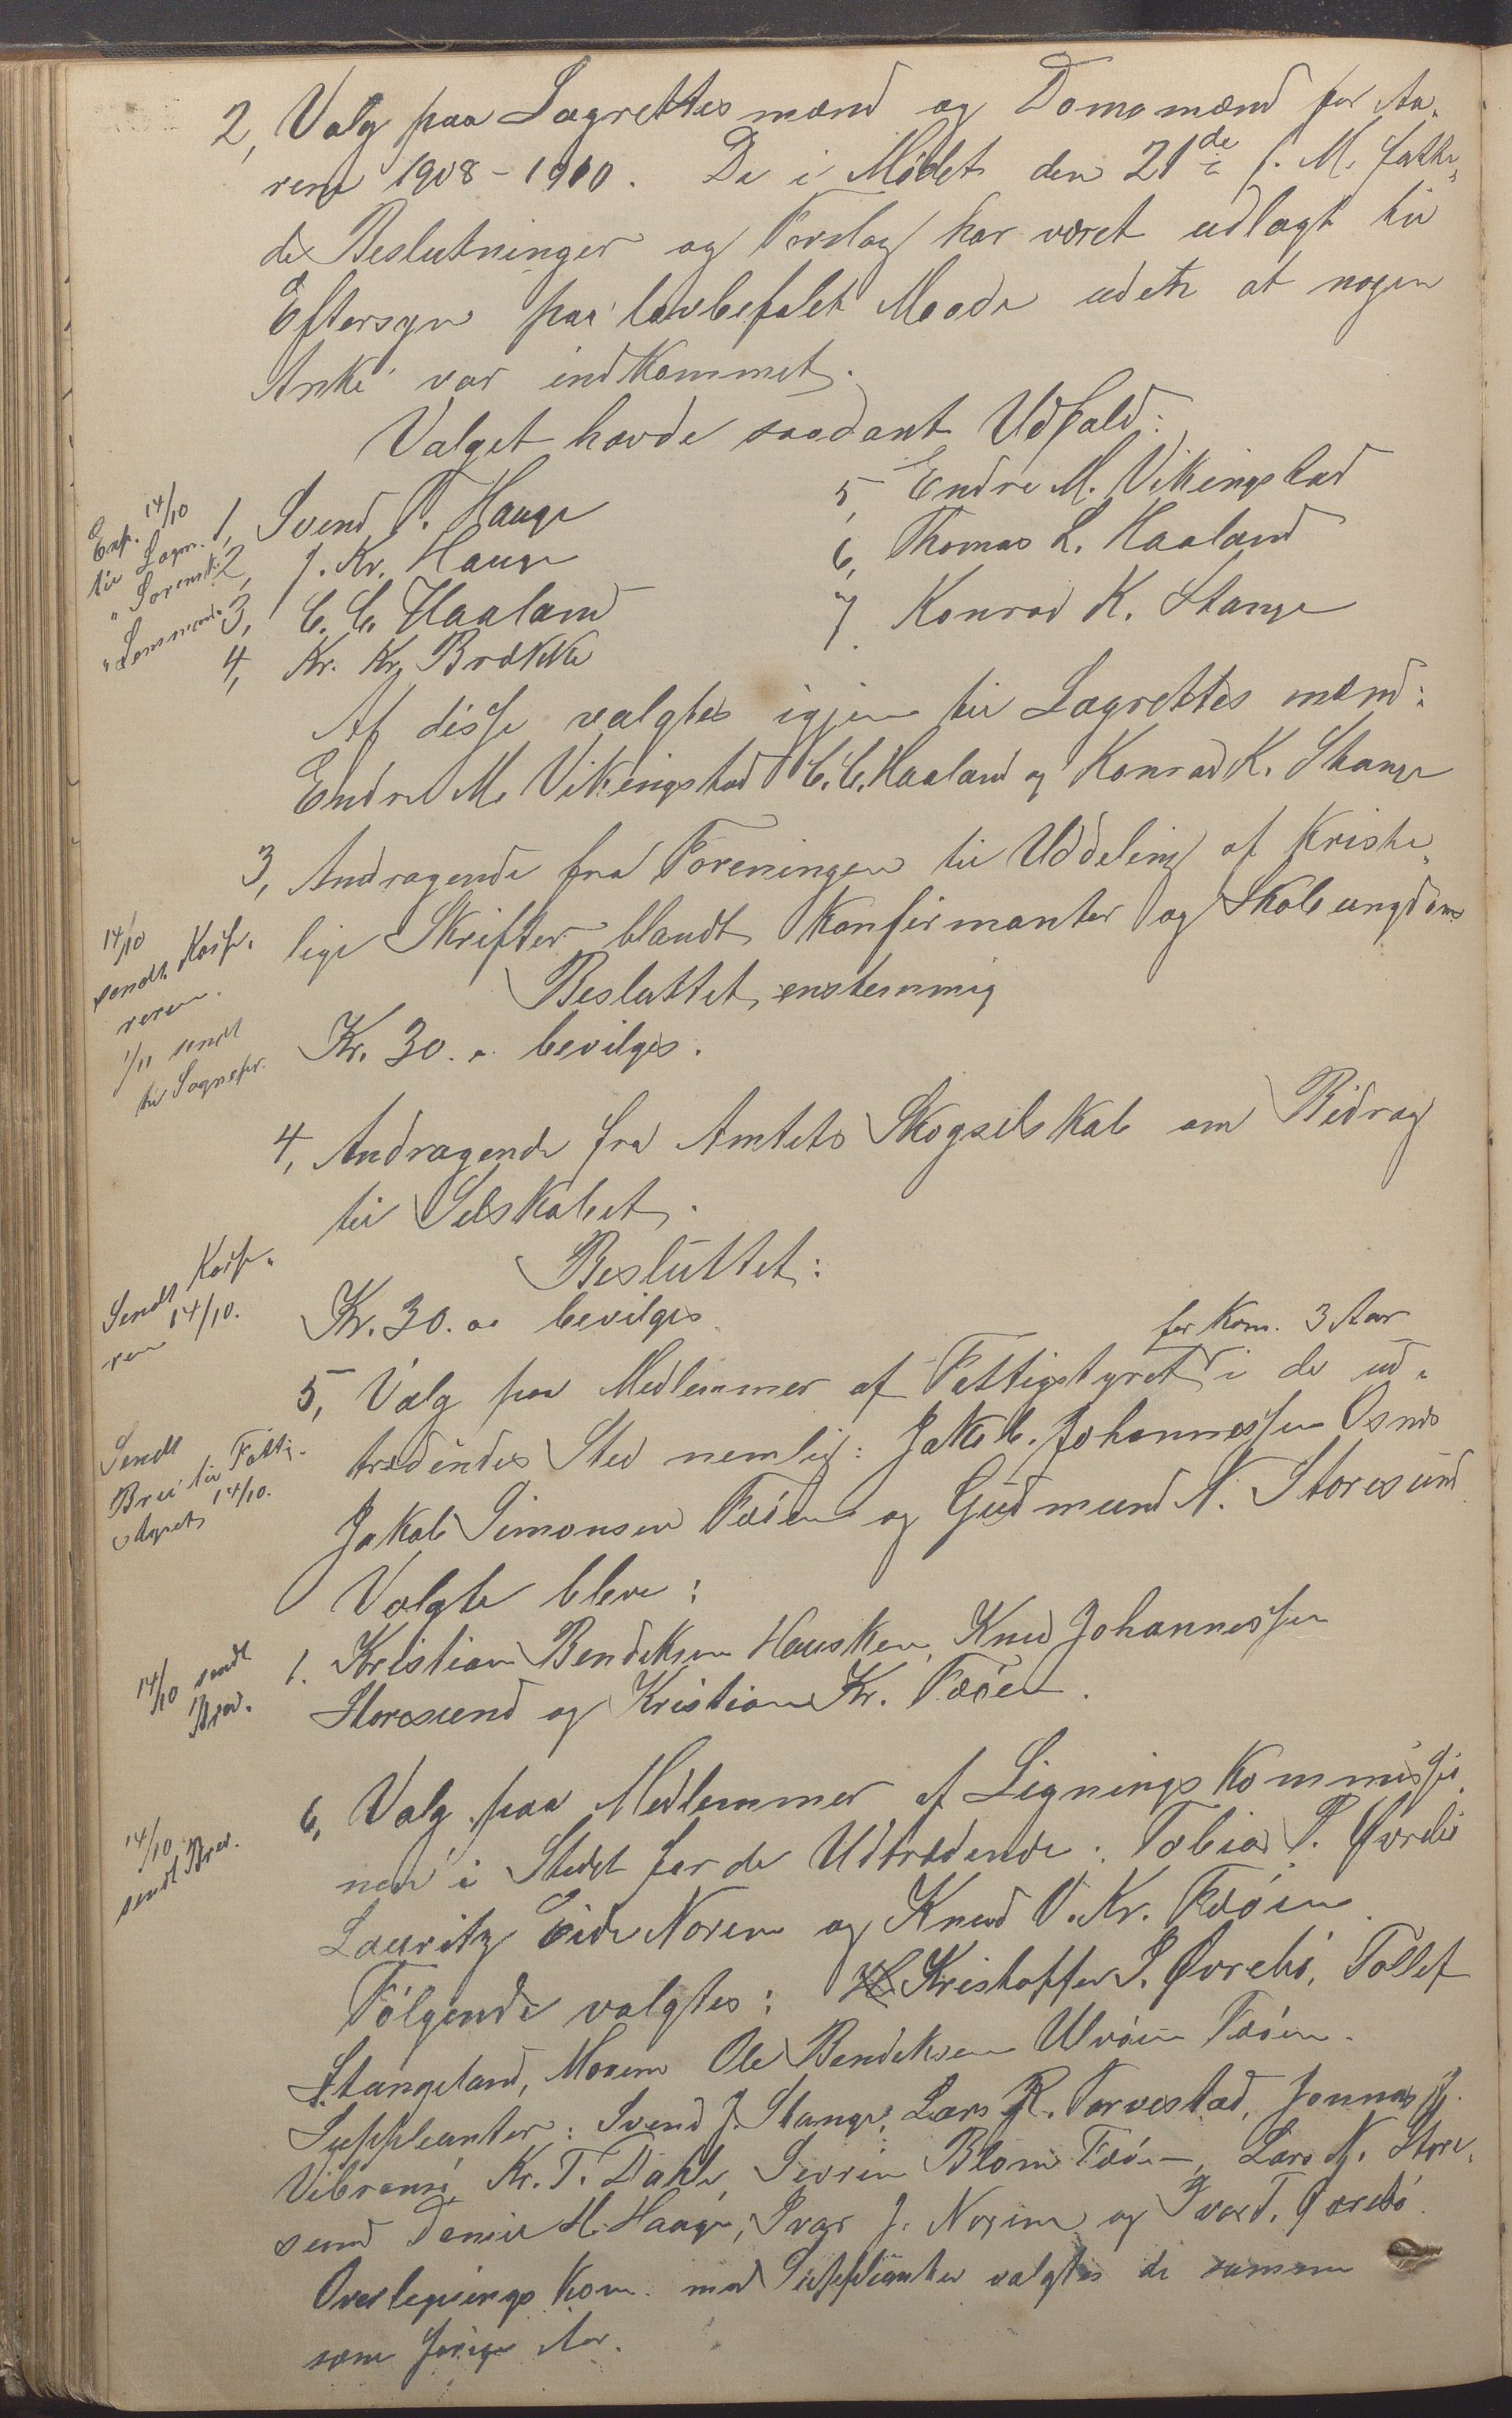 2, Valg paa Lagrettesmænd og Domsmænd for Aa„
rene 1908-1910. De i Mødet den 21de i f. M. fatte„
de Beslutninger og Forslag har været udlagt til
Eftersyn paa lovbefalet Maade uden at nogen
Anke var indkommet.
Valget havde saadant Udfald:
Exp. 14/10
til Lagm.
" Sorensk.
" Lensmand.
1, Svend T. Hauge
2, J. Kr. Hauge
3, C. C. Haaland
4, Kr. Kr. Brække
5, Endre M. Vikingstad
6, Thomas L. Haaland
7, Konrad K. Stange
Af disse valgtes igjen til Lagrettes mænd:
Endre M. Vikingstad C. C. Haaland og Konrad K. Stange
3, Andragende fra Foreningen til Uddeling af Kriste„
lige Skrifter blandt Konfirmanter og Skoleungdom
14/10
sendt Kasse„
reren.
1/11 sendt
til Sognepr.
Besluttet enstemmig
Kr. 30.00 bevilges.
4, Andragende fra Amtets Skogselskab om Bidrag
til Selskabet.
Besluttet:
Sendt Kasse„
ren 14/10.
Kr. 30.00 bevilges
for kom. 3 Aar
5, Valg paa Medlemmer af Fattigstyret i de ud„
trædendes Sted nemlig: Jakob Johannessen Osnes
Jakob Simonsen Fæøen og Gudmund N. Storesund
Sendt
Brev til Fattig-
styret 14/10.
Valgte blev:
1. Kristian Bendiksen Hausken, Knud Johannessen
Storesund og Kristian Kr. Fæøen.
14/10 sendt
Brev.
6, Valg paa Medlemmer af Ligningskommissio„
nen i Stedet for de Udtrædende: Tobias P. Øvrebø
Lauritz Eide Noren og Knud V. Kr. Fæøen
14/10
sendt Brev.
Følgende valgtes: Kristoffer P. Øvrebø, Tollef
Stangeland, Moren Ole Bendiksen Ulvøen Fæøen.
Suppleanter: Svend J. Stange, Lars R. Torvestad, Jonnas J.
Vibransø, Kr. T. Dahle, Sevrin Blom Fæøen, Lars N. Store„
sund Daniel H. Hauge, Ivar J. Noren og Ivar T. Øvrebø.
Overligningskom. med Suppleanter valgtes de samme
som forige Aar.